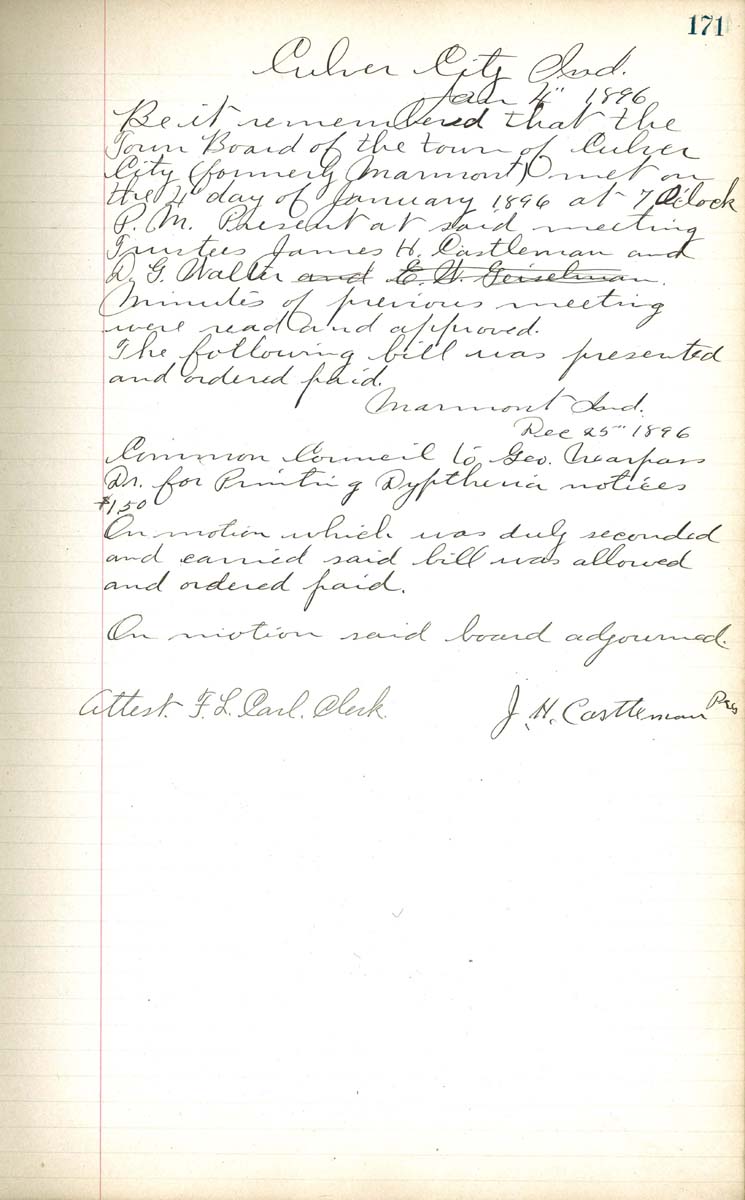 171
Culver City Ind.
Jan 4" 1896
Be it remembered that the
Town Board of the town of Culver
City (formerly Marmont) met on
the 4" day of January 1896 at 7 O'clock
P. M. Present at said meeting
Trustees James H. Castleman and
D. G. Walter and E. W. Geiselman.
Minutes of previous meeting
were read and approved.
The following bill was presented
and ordered paid.
Marmont Ind.
Dec 25" 1896
Common Council to Geo. Nearpass
Dr. for Printing Dyptheria notices
$1.50
On motion which was duly seconded
and carried said bill was allowed
and ordered paid.
On motion said board adjourned.
Attest. F. L. Carl. Clerk.
J. H. Castleman Pres